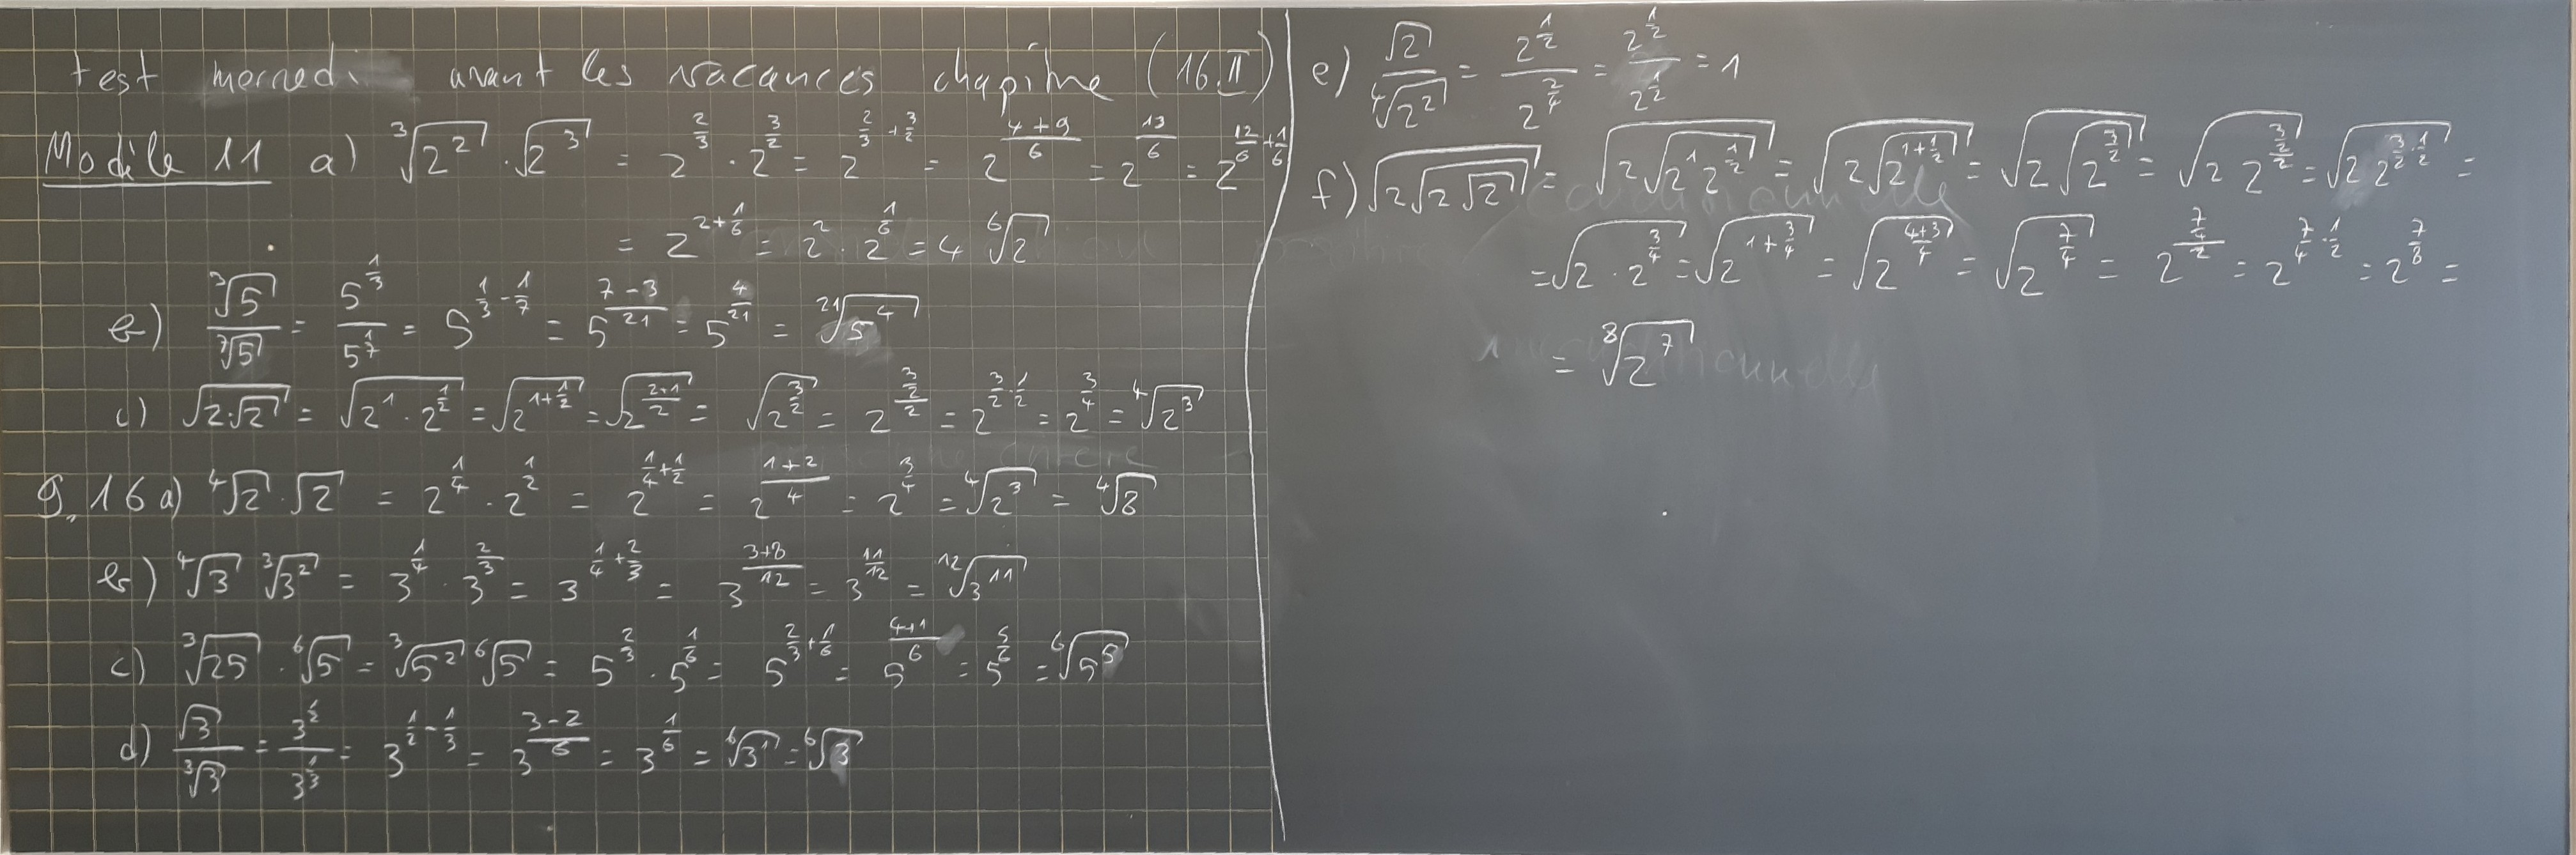 test mercredi avant les vacances chapitre (16.II)
Modèle 11 a) ∛(2²) · √(2³) = 2^(2/3) · 2^(3/2) = 2^(2/3 + 3/2) = 2^((4+9)/6) = 2^(13/6) = 2^(12/6 + 1/6)
= 2^(2+1/6) = 2² · 2^(1/6) = 4 ⁶√2
b) ∛5 / ⁷√5 = 5^(1/3) / 5^(1/7) = 5^(1/3 - 1/7) = 5^((7-3)/21) = 5^(4/21) = ²¹√(5⁴)
c) √(2·√2) = √(2¹ · 2^(1/2)) = √(2^(1+1/2)) = √(2^((2+1)/2)) = √(2^(3/2)) = 2^((3/2)/2) = 2^(3/2 · 1/2) = 2^(3/4) = ⁴√(2³)
9.16 a) ⁴√2 · √2 = 2^(1/4) · 2^(1/2) = 2^(1/4 + 1/2) = 2^((1+2)/4) = 2^(3/4) = ⁴√(2³) = ⁴√8
b) ⁴√3 ∛(3²) = 3^(1/4) · 3^(2/3) = 3^(1/4 + 2/3) = 3^((3+8)/12) = 3^(11/12) = ¹²√(3¹¹)
c) ∛25 · ⁶√5 = ∛(5²) ⁶√5 = 5^(2/3) · 5^(1/6) = 5^(2/3 + 1/6) = 5^((4+1)/6) = 5^(5/6) = ⁶√(5⁵)
d) √3 / ∛3 = 3^(1/2) / 3^(1/3) = 3^(1/2 - 1/3) = 3^((3-2)/6) = 3^(1/6) = ⁶√(3¹) = ⁶√3
e) √2 / ⁴√(2²) = 2^(1/2) / 2^(2/4) = 2^(1/2) / 2^(1/2) = 1
f) √(2√(2√2)) = √(2√(2¹ 2^(1/2))) = √(2√(2^(1+1/2))) = √(2√(2^(3/2))) = √(2 2^((3/2)/2)) = √(2 2^(3/2 · 1/2)) =
= √(2 · 2^(3/4)) = √(2^(1+3/4)) = √(2^((4+3)/4)) = √(2^(7/4)) = 2^((7/4)/2) = 2^(7/4 · 1/2) = 2^(7/8) =
= ⁸√(2⁷)